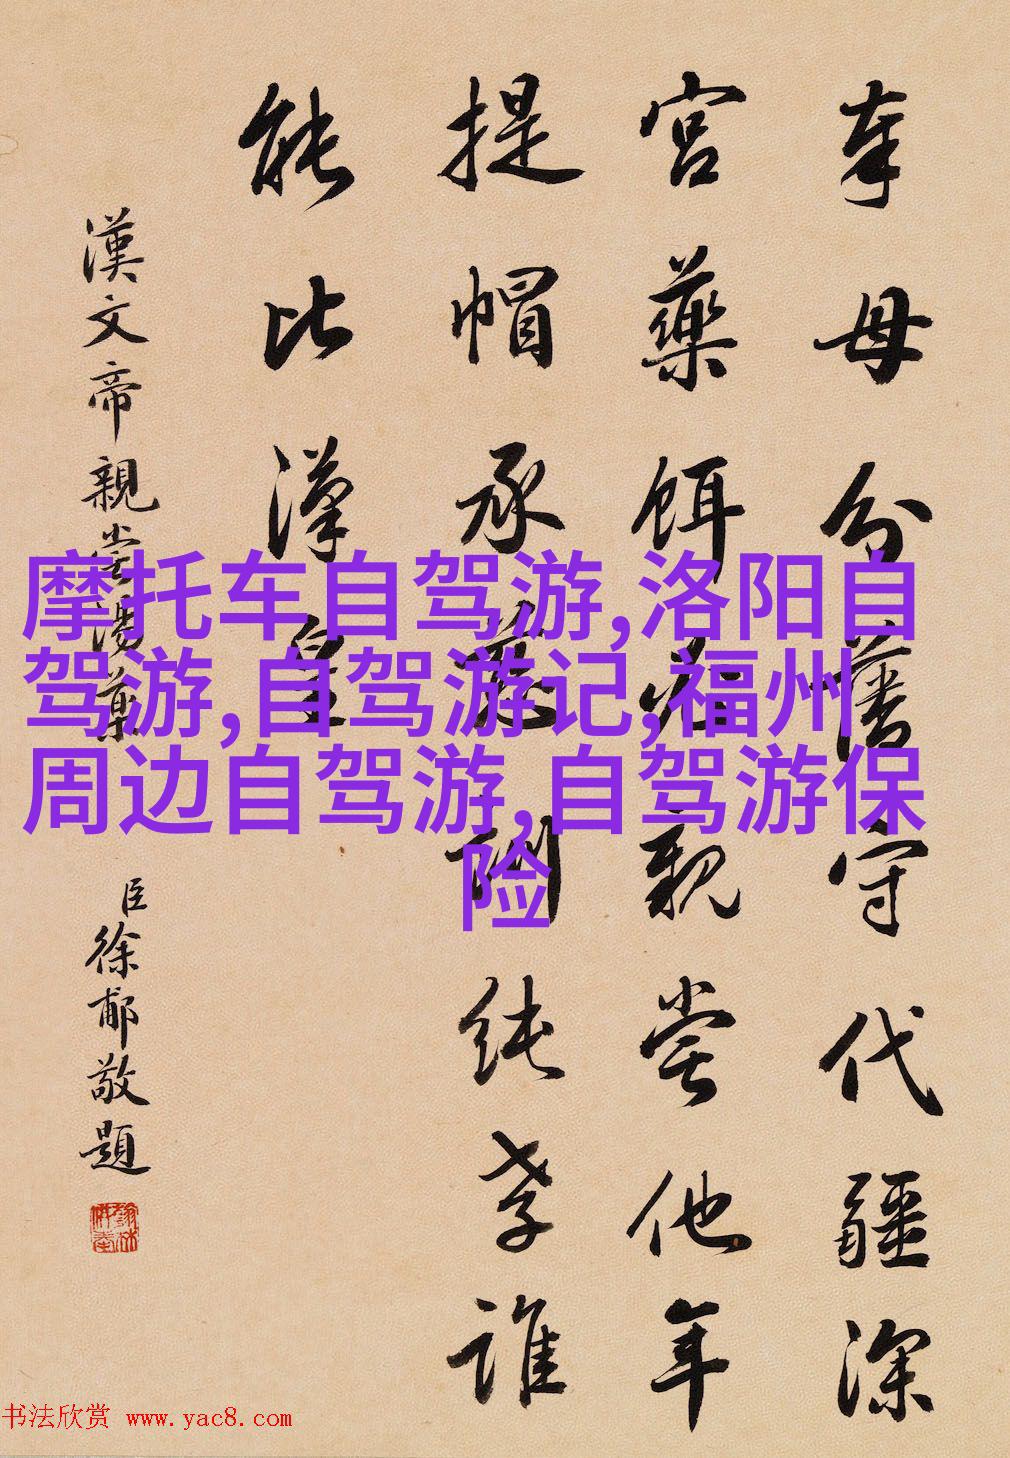 奉母分藩守代疆深
宮藥餌必親嘗他年
提帽承慈純孝誰
能比漢皇
漢文帝親嘗湯藥
臣徐郙敬題
摩托车自驾游,洛阳自
驾游,自驾游记,福州
周边自驾游,自驾游保
险
书法欣赏 www.yac8.com